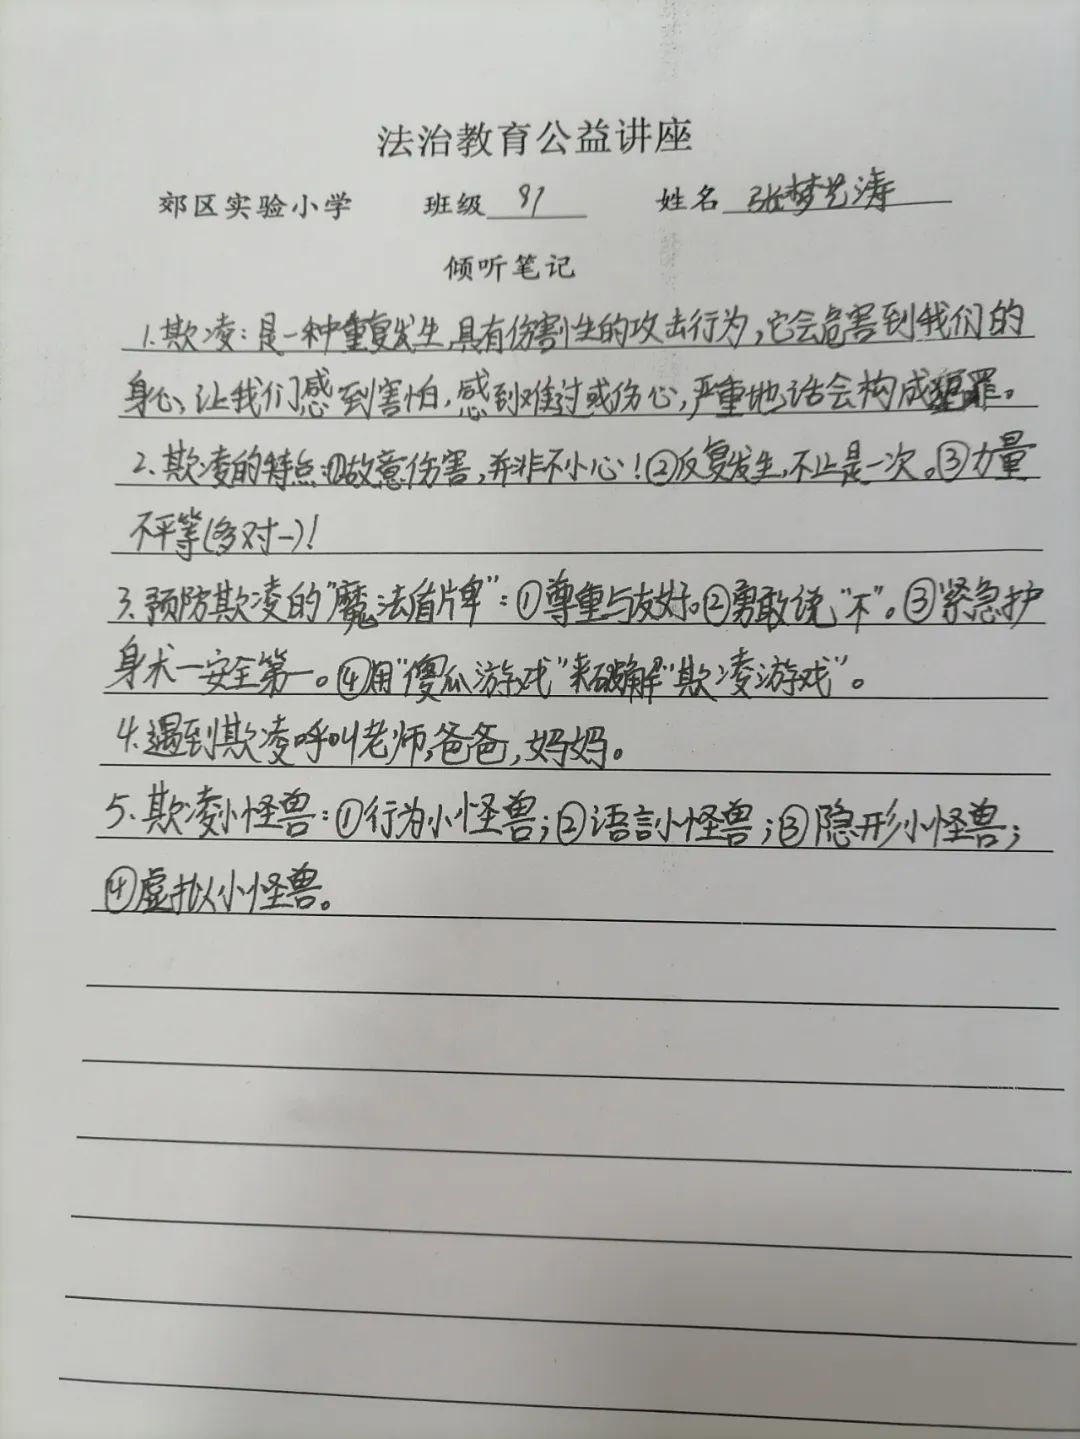 法治教育公益讲座
郊区实验小学 班级 81 姓名 张梦艺涛
倾听笔记
1.欺凌:是一种重复发生,具有伤害性的攻击行为,它会危害到我们的
身心,让我们感到害怕,感到难过或伤心,严重地话会构成犯罪。
2.欺凌的特点:①故意伤害,并非不小心!②反复发生,不止是一次。③力量
不平等(多对一)!
3.预防欺凌的"魔法盾牌":①尊重与友好。②勇敢说"不"。③紧急护
身术一安全第一。④用"傻瓜游戏"来破解"欺凌游戏"。
4.遇到欺凌呼叫老师,爸爸,妈妈。
5.欺凌小怪兽:①行为小怪兽;②语言小怪兽;③隐形小怪兽;
④虚拟小怪兽。